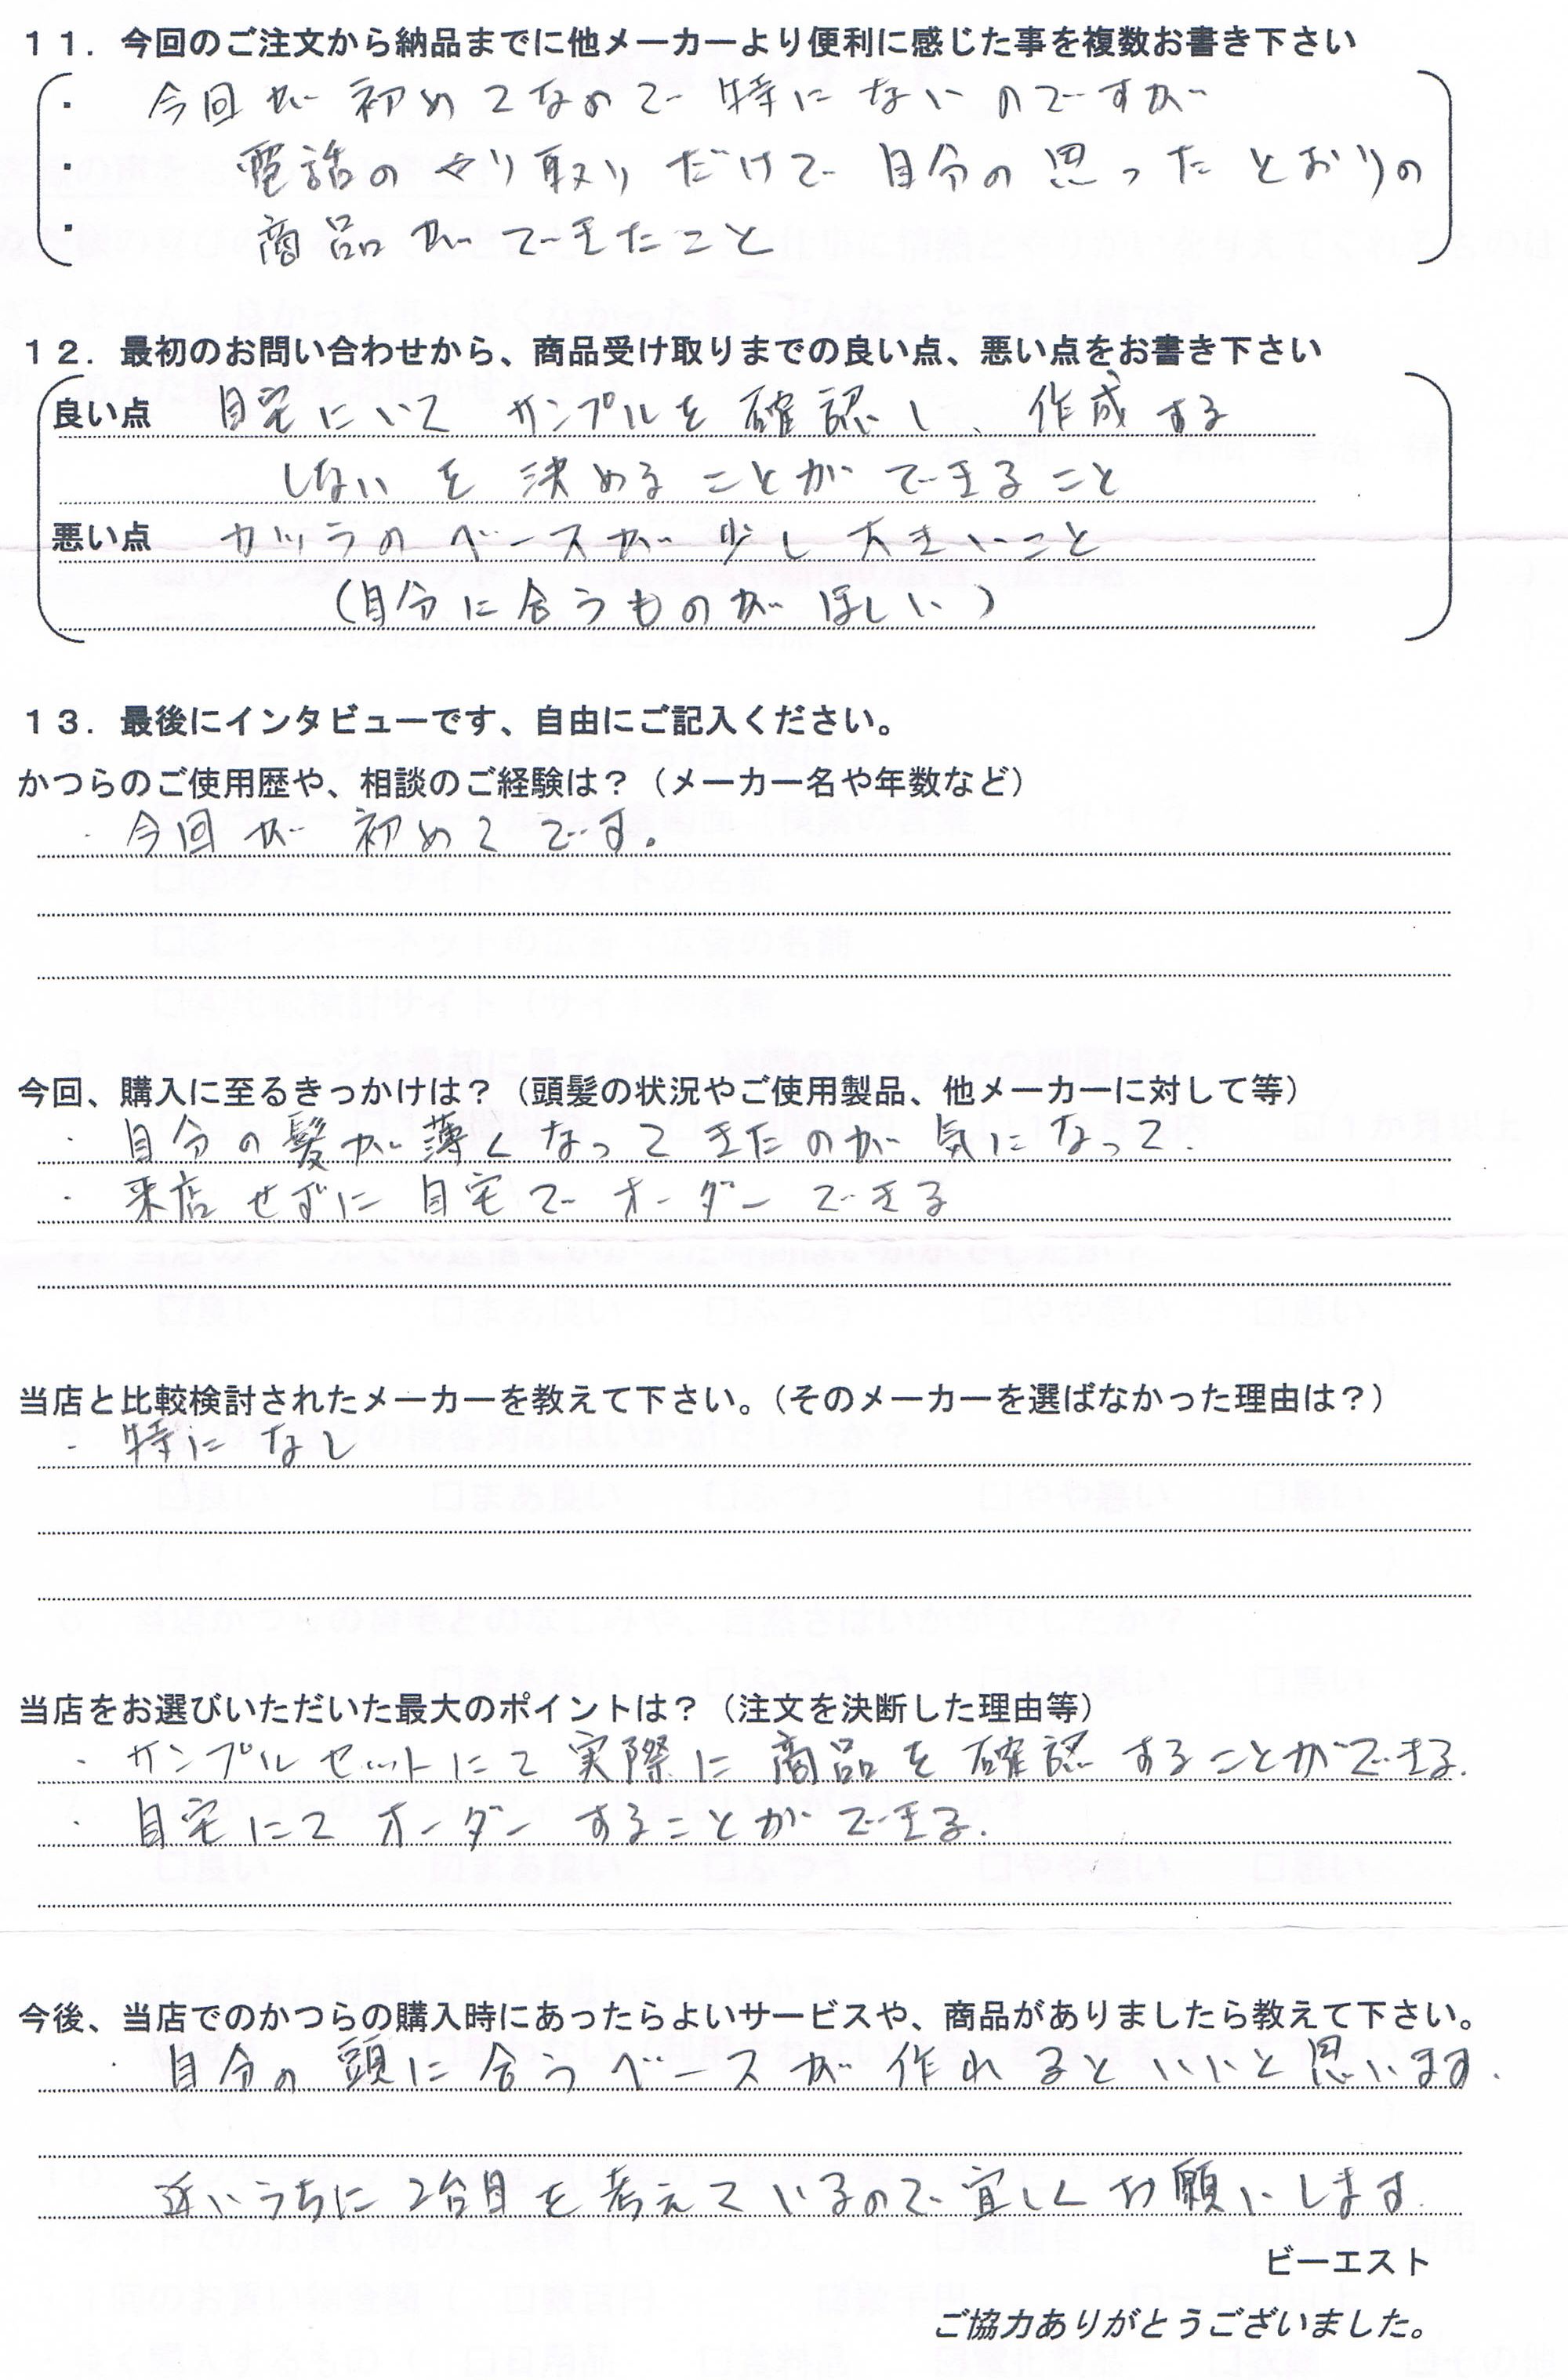 11．今回のご注文から納品までに他メーカーより便利に感じた事を複数お書き下さい
・ 今回が初めてなので特にないのですが
・ 電話のやり取りだけで自分の思ったとおりの
・ 商品ができたこと
12．最初のお問い合わせから、商品受け取りまでの良い点、悪い点をお書き下さい
良い点 自宅にいてサンプルを確認し、作成する
しないを決めることができること
悪い点 カツラのベースが少し大きいこと
（自分に合うものがほしい）
13．最後にインタビューです、自由にご記入ください。
かつらのご使用歴や、相談のご経験は？（メーカー名や年数など）
・今回が初めてです。
今回、購入に至るきっかけは？（頭髪の状況やご使用製品、他メーカーに対して等）
・自分の髪が薄くなってきたのが気になって.
・来店せずに自宅でオーダーできる
当店と比較検討されたメーカーを教えて下さい。（そのメーカーを選ばなかった理由は？）
・特になし
当店をお選びいただいた最大のポイントは？（注文を決断した理由等）
・サンプルセットにて実際に商品を確認することができる.
・自宅にてオーダーすることができる.
今後、当店でのかつらの購入時にあったらよいサービスや、商品がありましたら教えて下さい。
・自分の頭に合うベースが作れるといいと思います.
近いうちに2台目を考えているので宜しくお願いします.
ビーエスト
ご協力ありがとうございました。